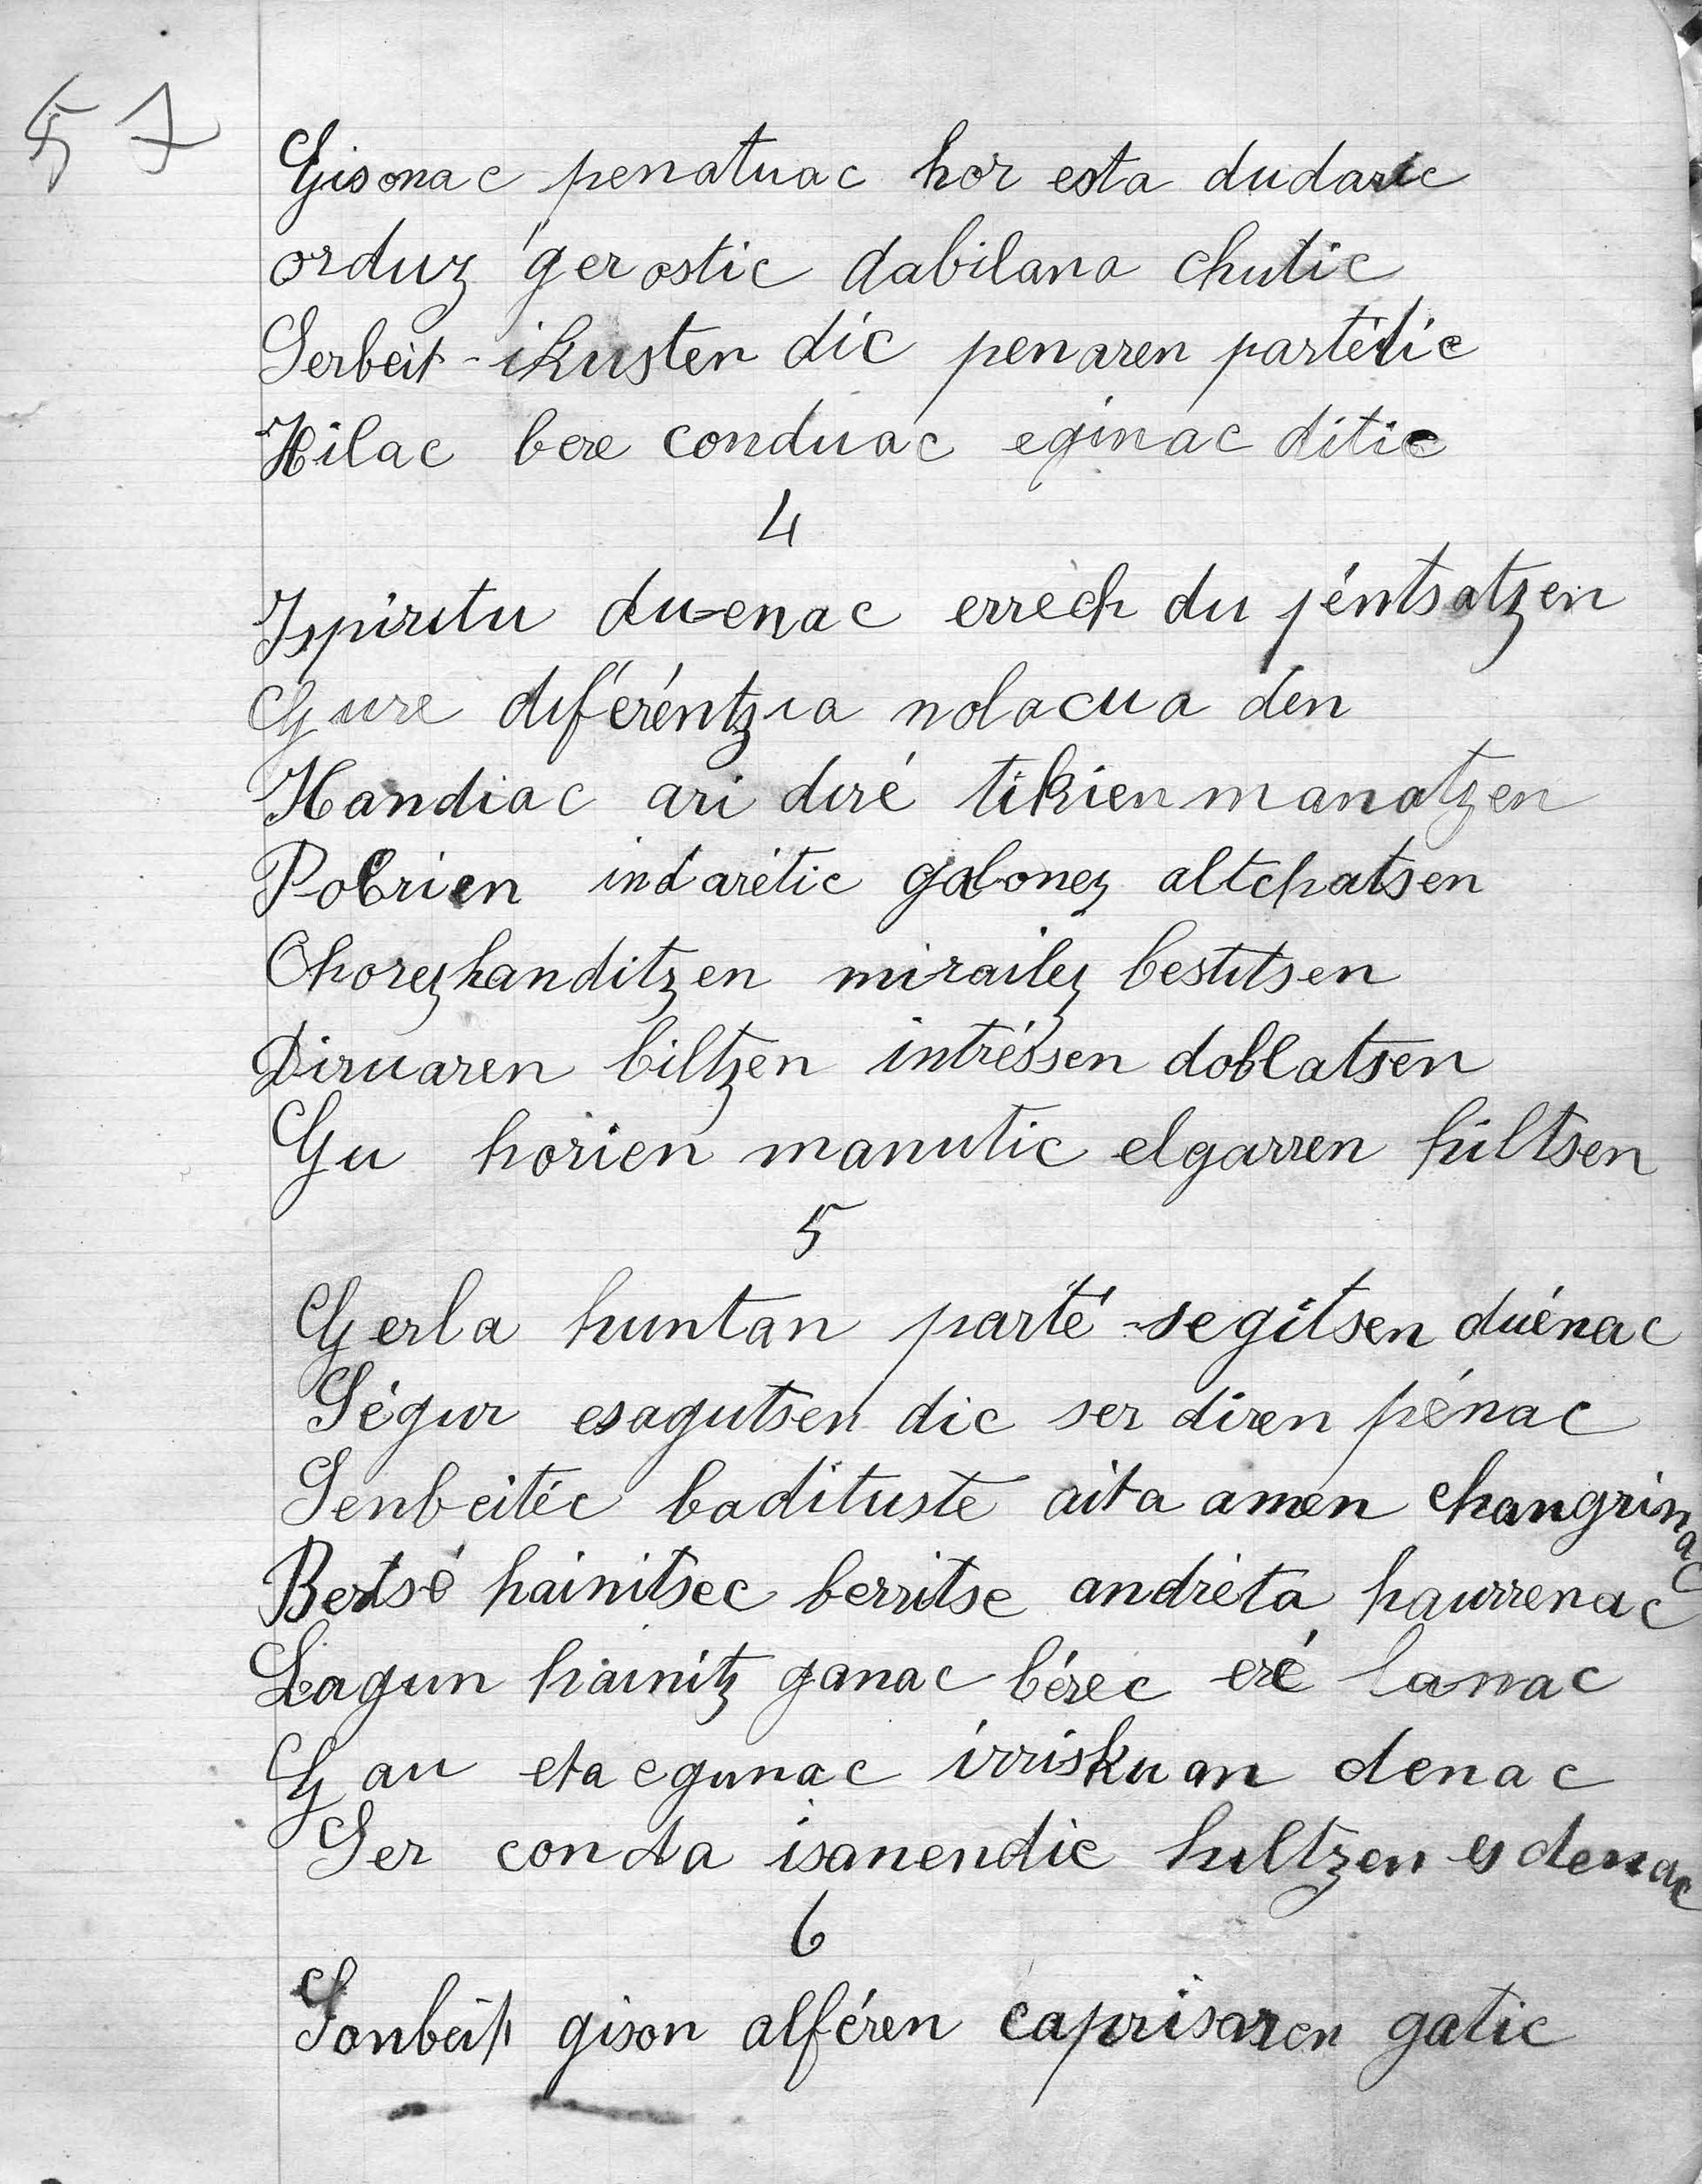 57
Gisonac penatuac hor esta dudaric
orduz gerostic dabilana chutic
Serbeit ikusten dic penaren partétic
Hilac bere conduac eginac ditic
4
Ispiritu duenac errech du péntsatzen
Gure diféréntzia nolacua den
Handiac ari diré tikien manatzen
Pobrien indarétic galonez altchatsen
Ohorez handitzen mirailez bestitsen
Diruaren biltzen intréssen doblatsen
Gu horien manutic elgarren hiltsen
5
Gerla huntan parté segitsen duénac
Ségur esagutsen dic ser diren pénac
Senbeitéc badituste aita amen changrinac
Bertsé hainitsec berritse andréta haurrenac
Lagun hainitz ganac bérec eré lanac
Gau eta egunac irriskuan denac
Ser conda isanendic hiltzen es denac
6
Sonbeit gison alféren caprisaren gatic